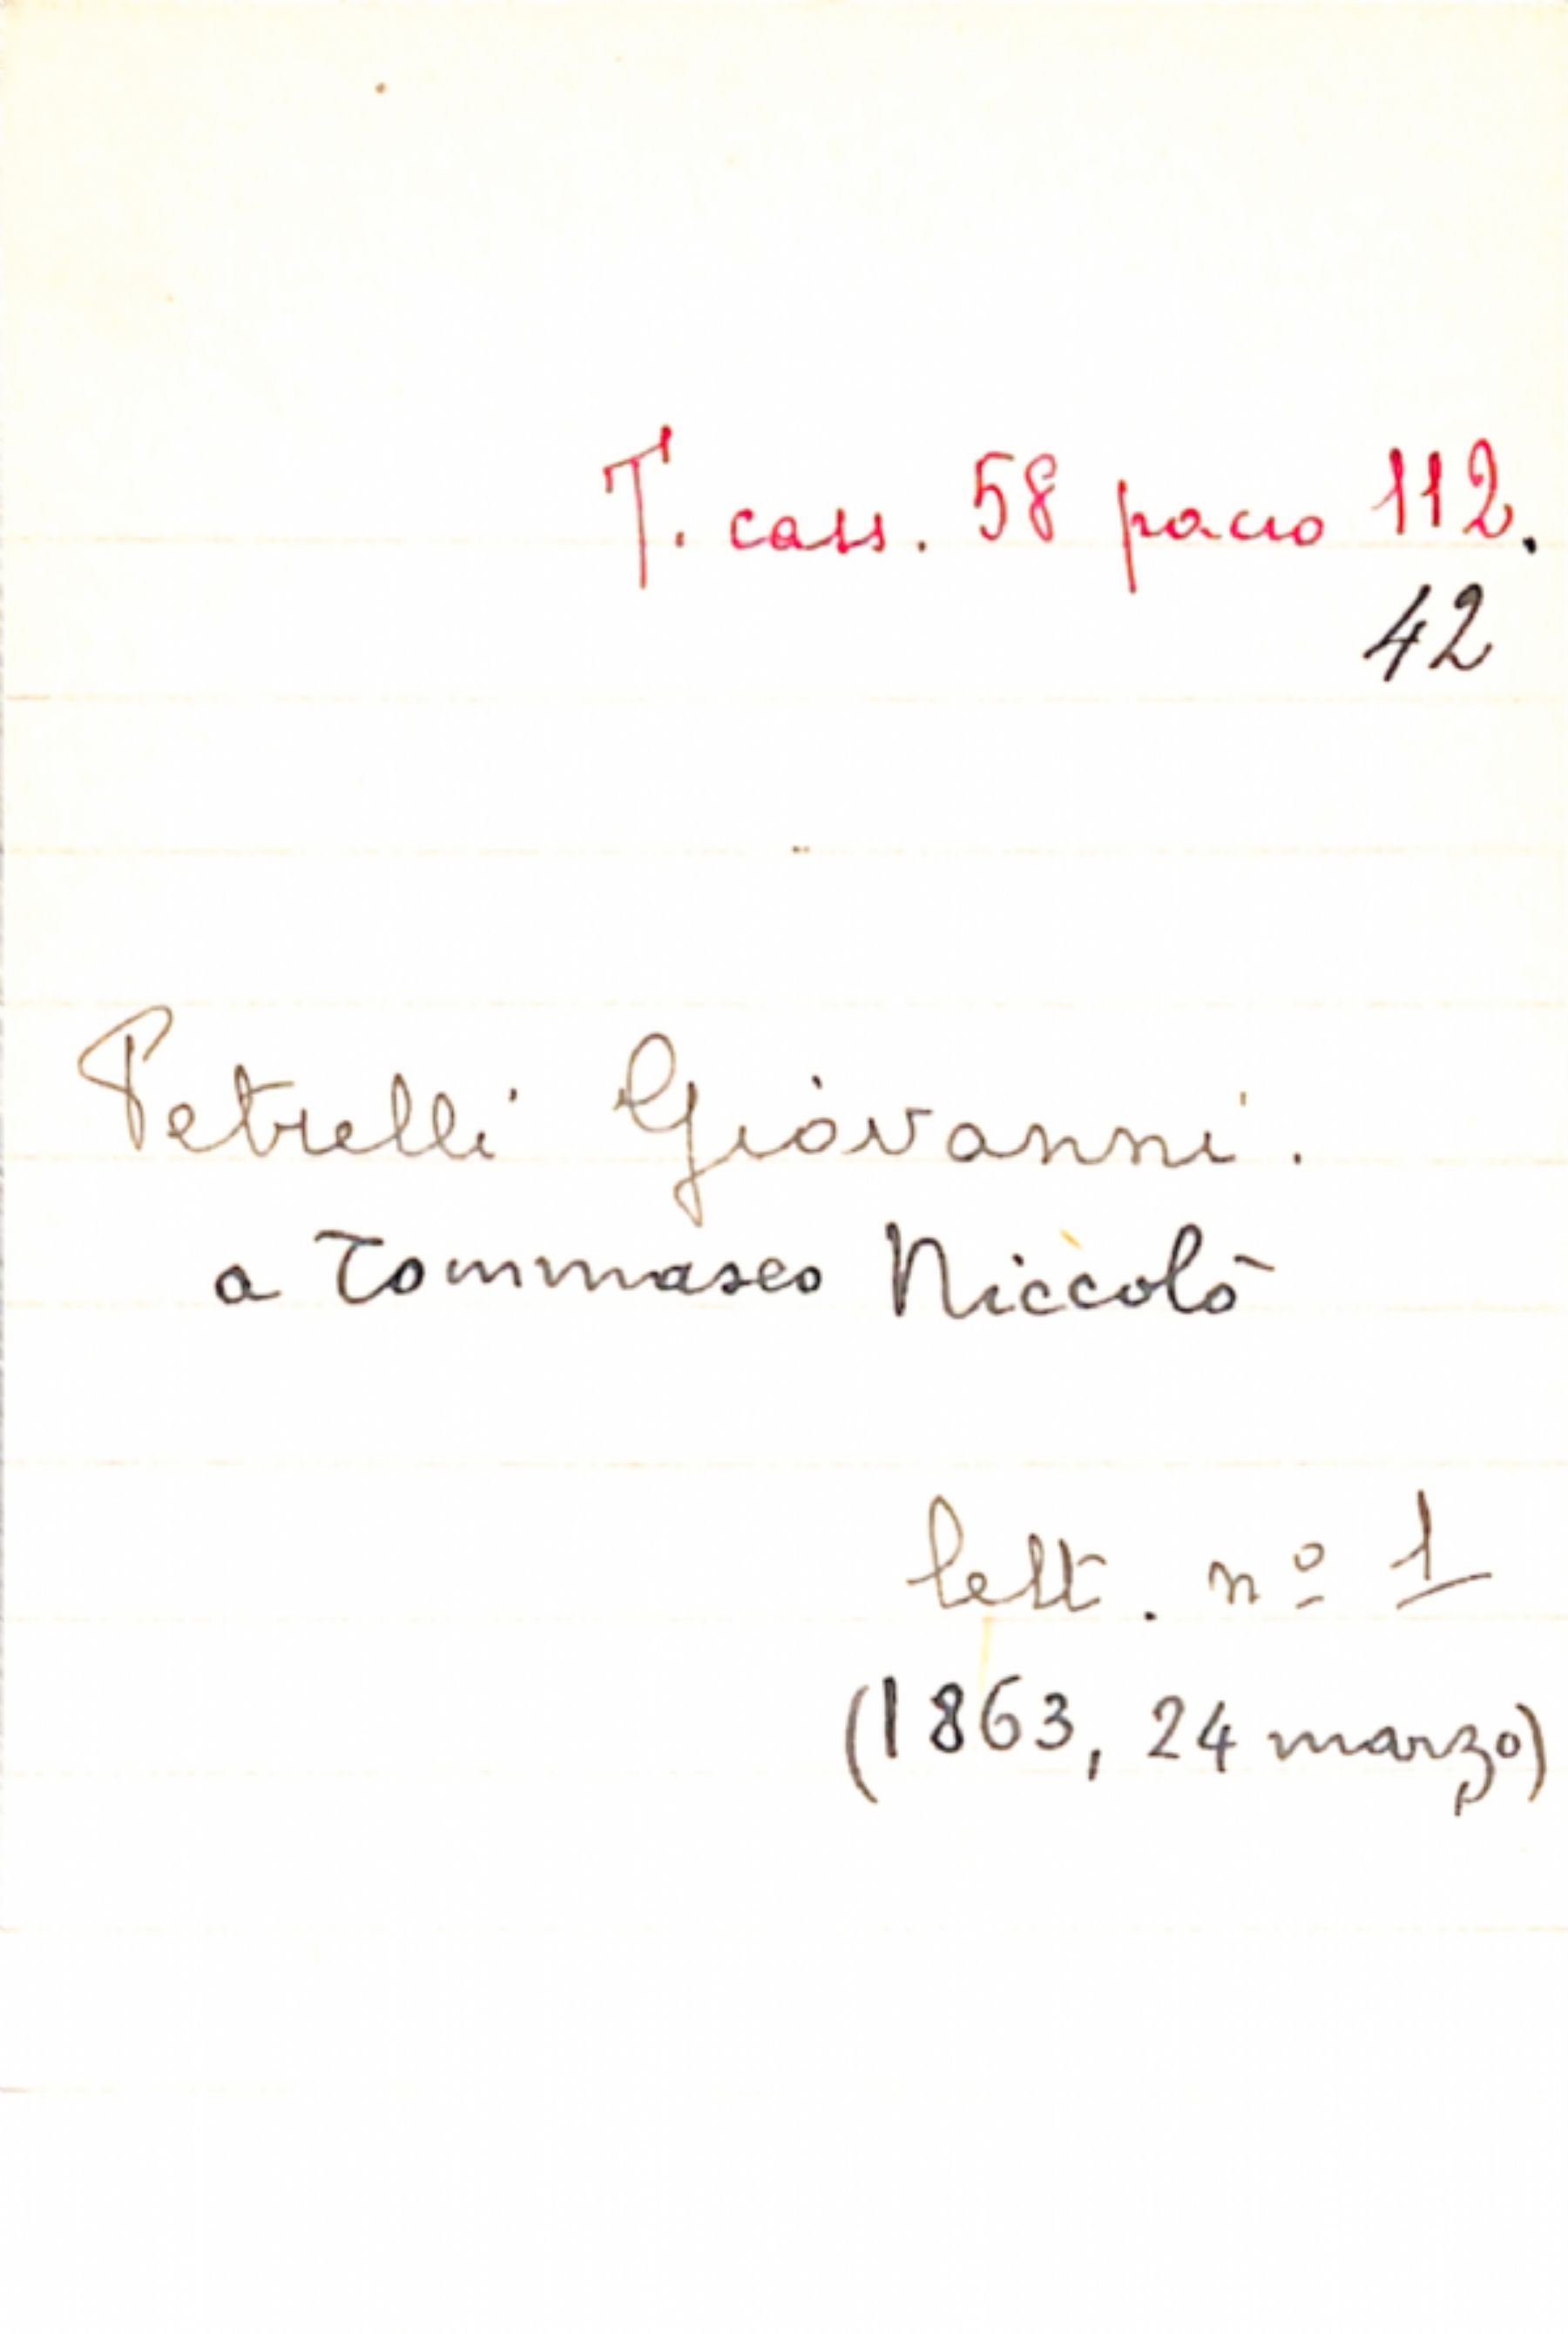 T. cass. 58 pacco 112.
42
Petrelli Giovanni.
a Tommaseo Niccolò
lett. nº 1
(1863, 24 marzo)